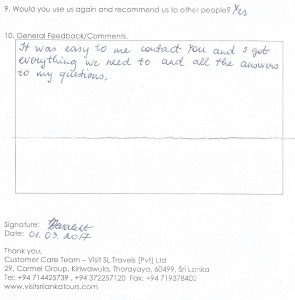 9. Would you use us again and recommend us to other people? Yes
10. General Feedback/Comments.
It was easy to me contact You and I got
everything we need to and all the answers
to my questions.
Signature:
Date: 01. 03. 2017
Thank you,
Customer Care Team – Visit SL Travels [Pvt] Ltd
29, Carmel Group, Kiriwawula, Thorayaya, 60499, Sri Lanka
Tel: +94 714425739 , +94 372257120 Fax: +94 719378402
www.visitsrilankatours.com